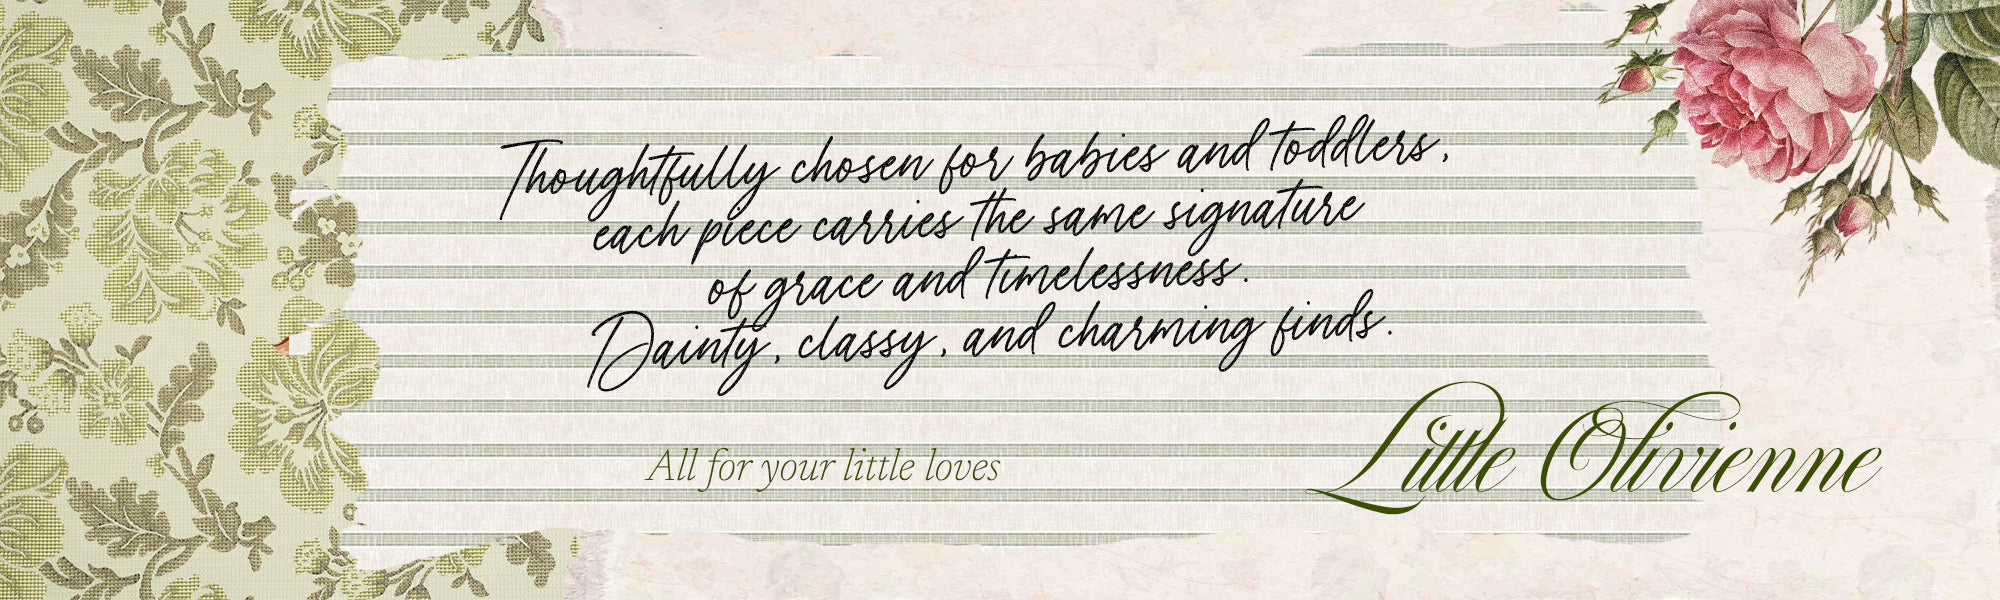 Thoughtfully chosen for babies and toddlers,
each piece carries the same signature
of grace and timelessness.
Dainty, classy, and charming finds.
All for your little loves
Little Olivienne